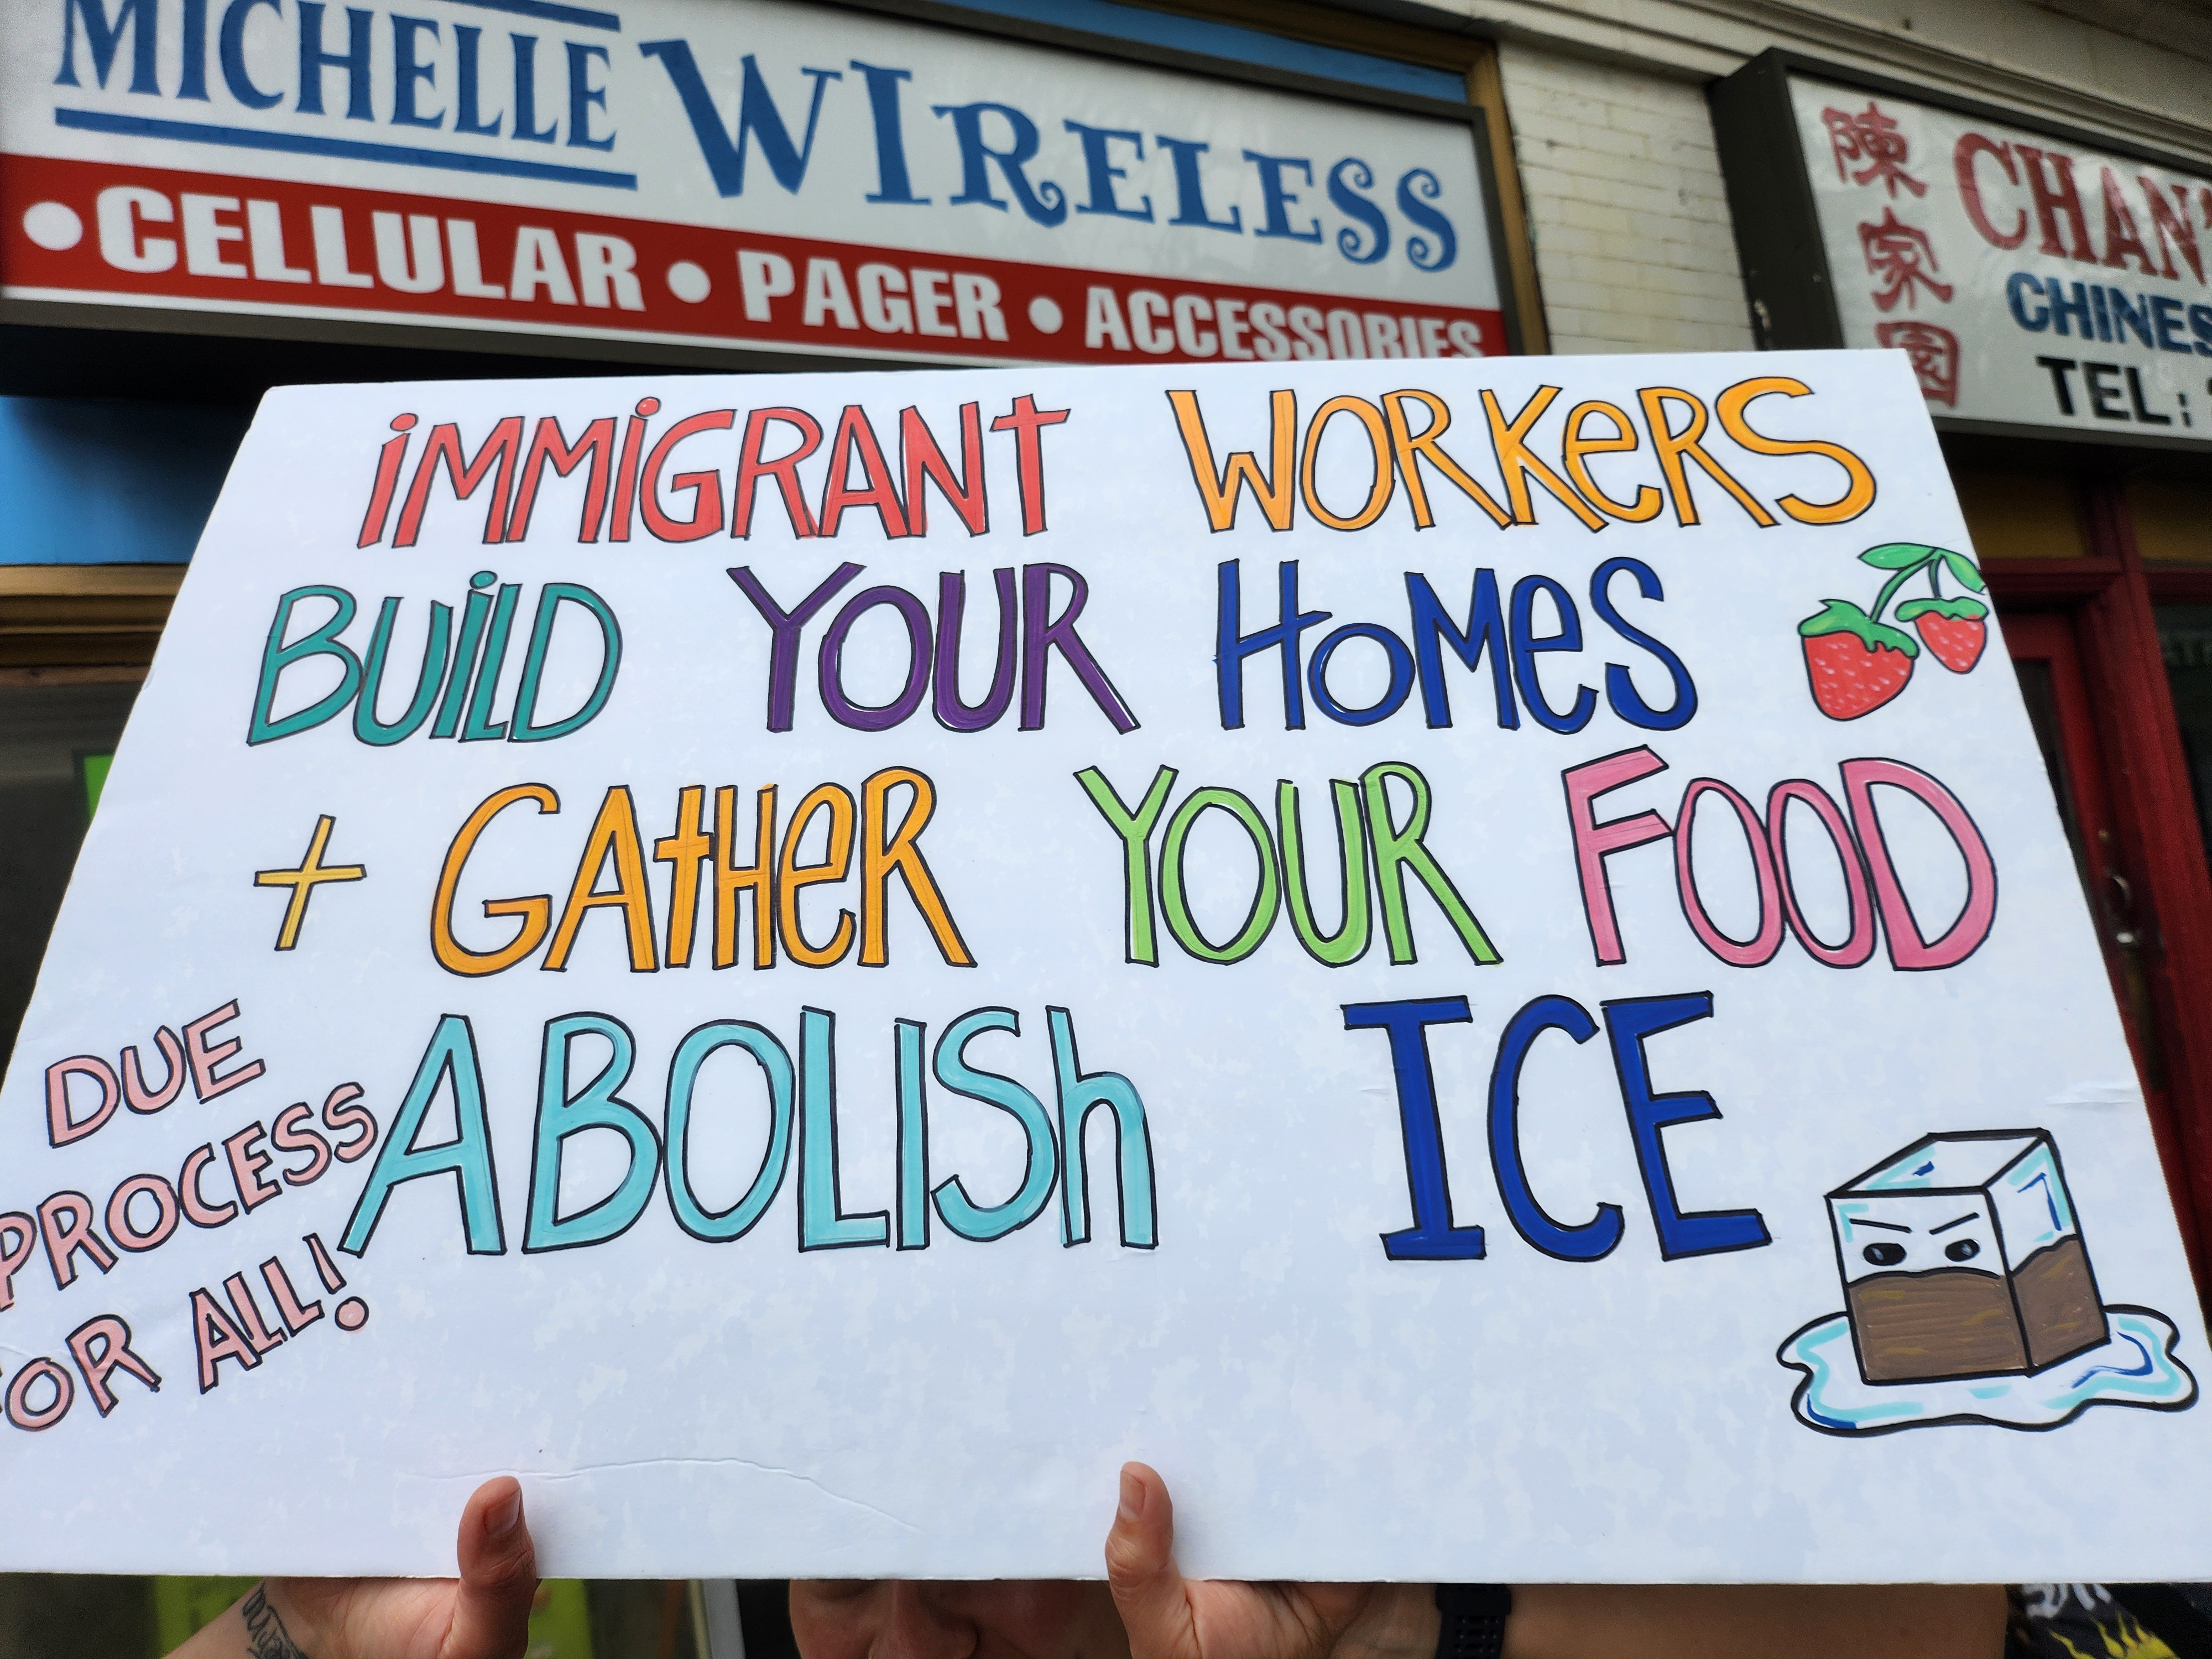 MICHELLE WIRELESS
• CELLULAR • PAGER • ACCESSORIES
陳家園
CHAN'
CHINES
TEL:
iMMiGRANT WORKeRS
BUiLD YOUR HoMeS
+ GAtHeR YOUR FOOD
ABOLISh ICE
DUE
PROCESS
FOR ALL!